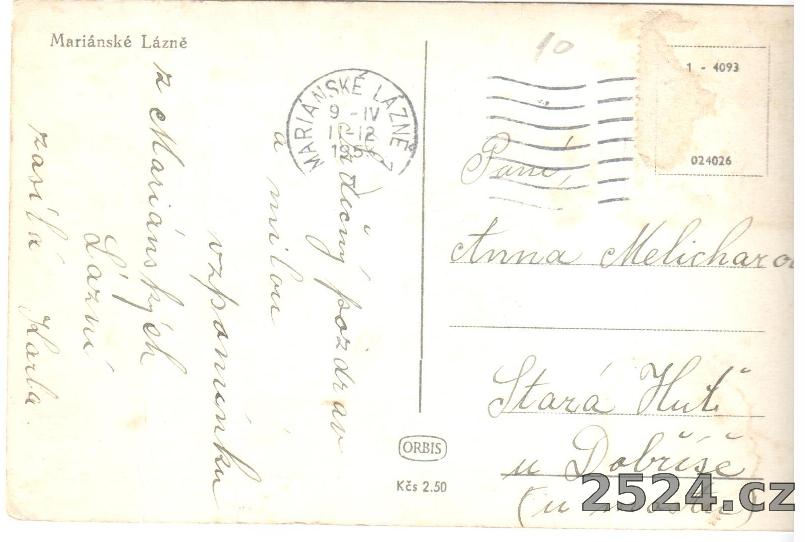 Mariánské Lázně
Srdečný pozdrav
a milou
vzpomínku
z Mariánských
Lázní
zasílá Karla.
MARIÁNSKÉ LÁZNĚ
9 -IV
11-12
195
10
1 - 4093
024026
Paní,
Anna Melicharo
Stará Huť
u Dobříše
(u
ORBIS
Kčs 2.50
2524.cz